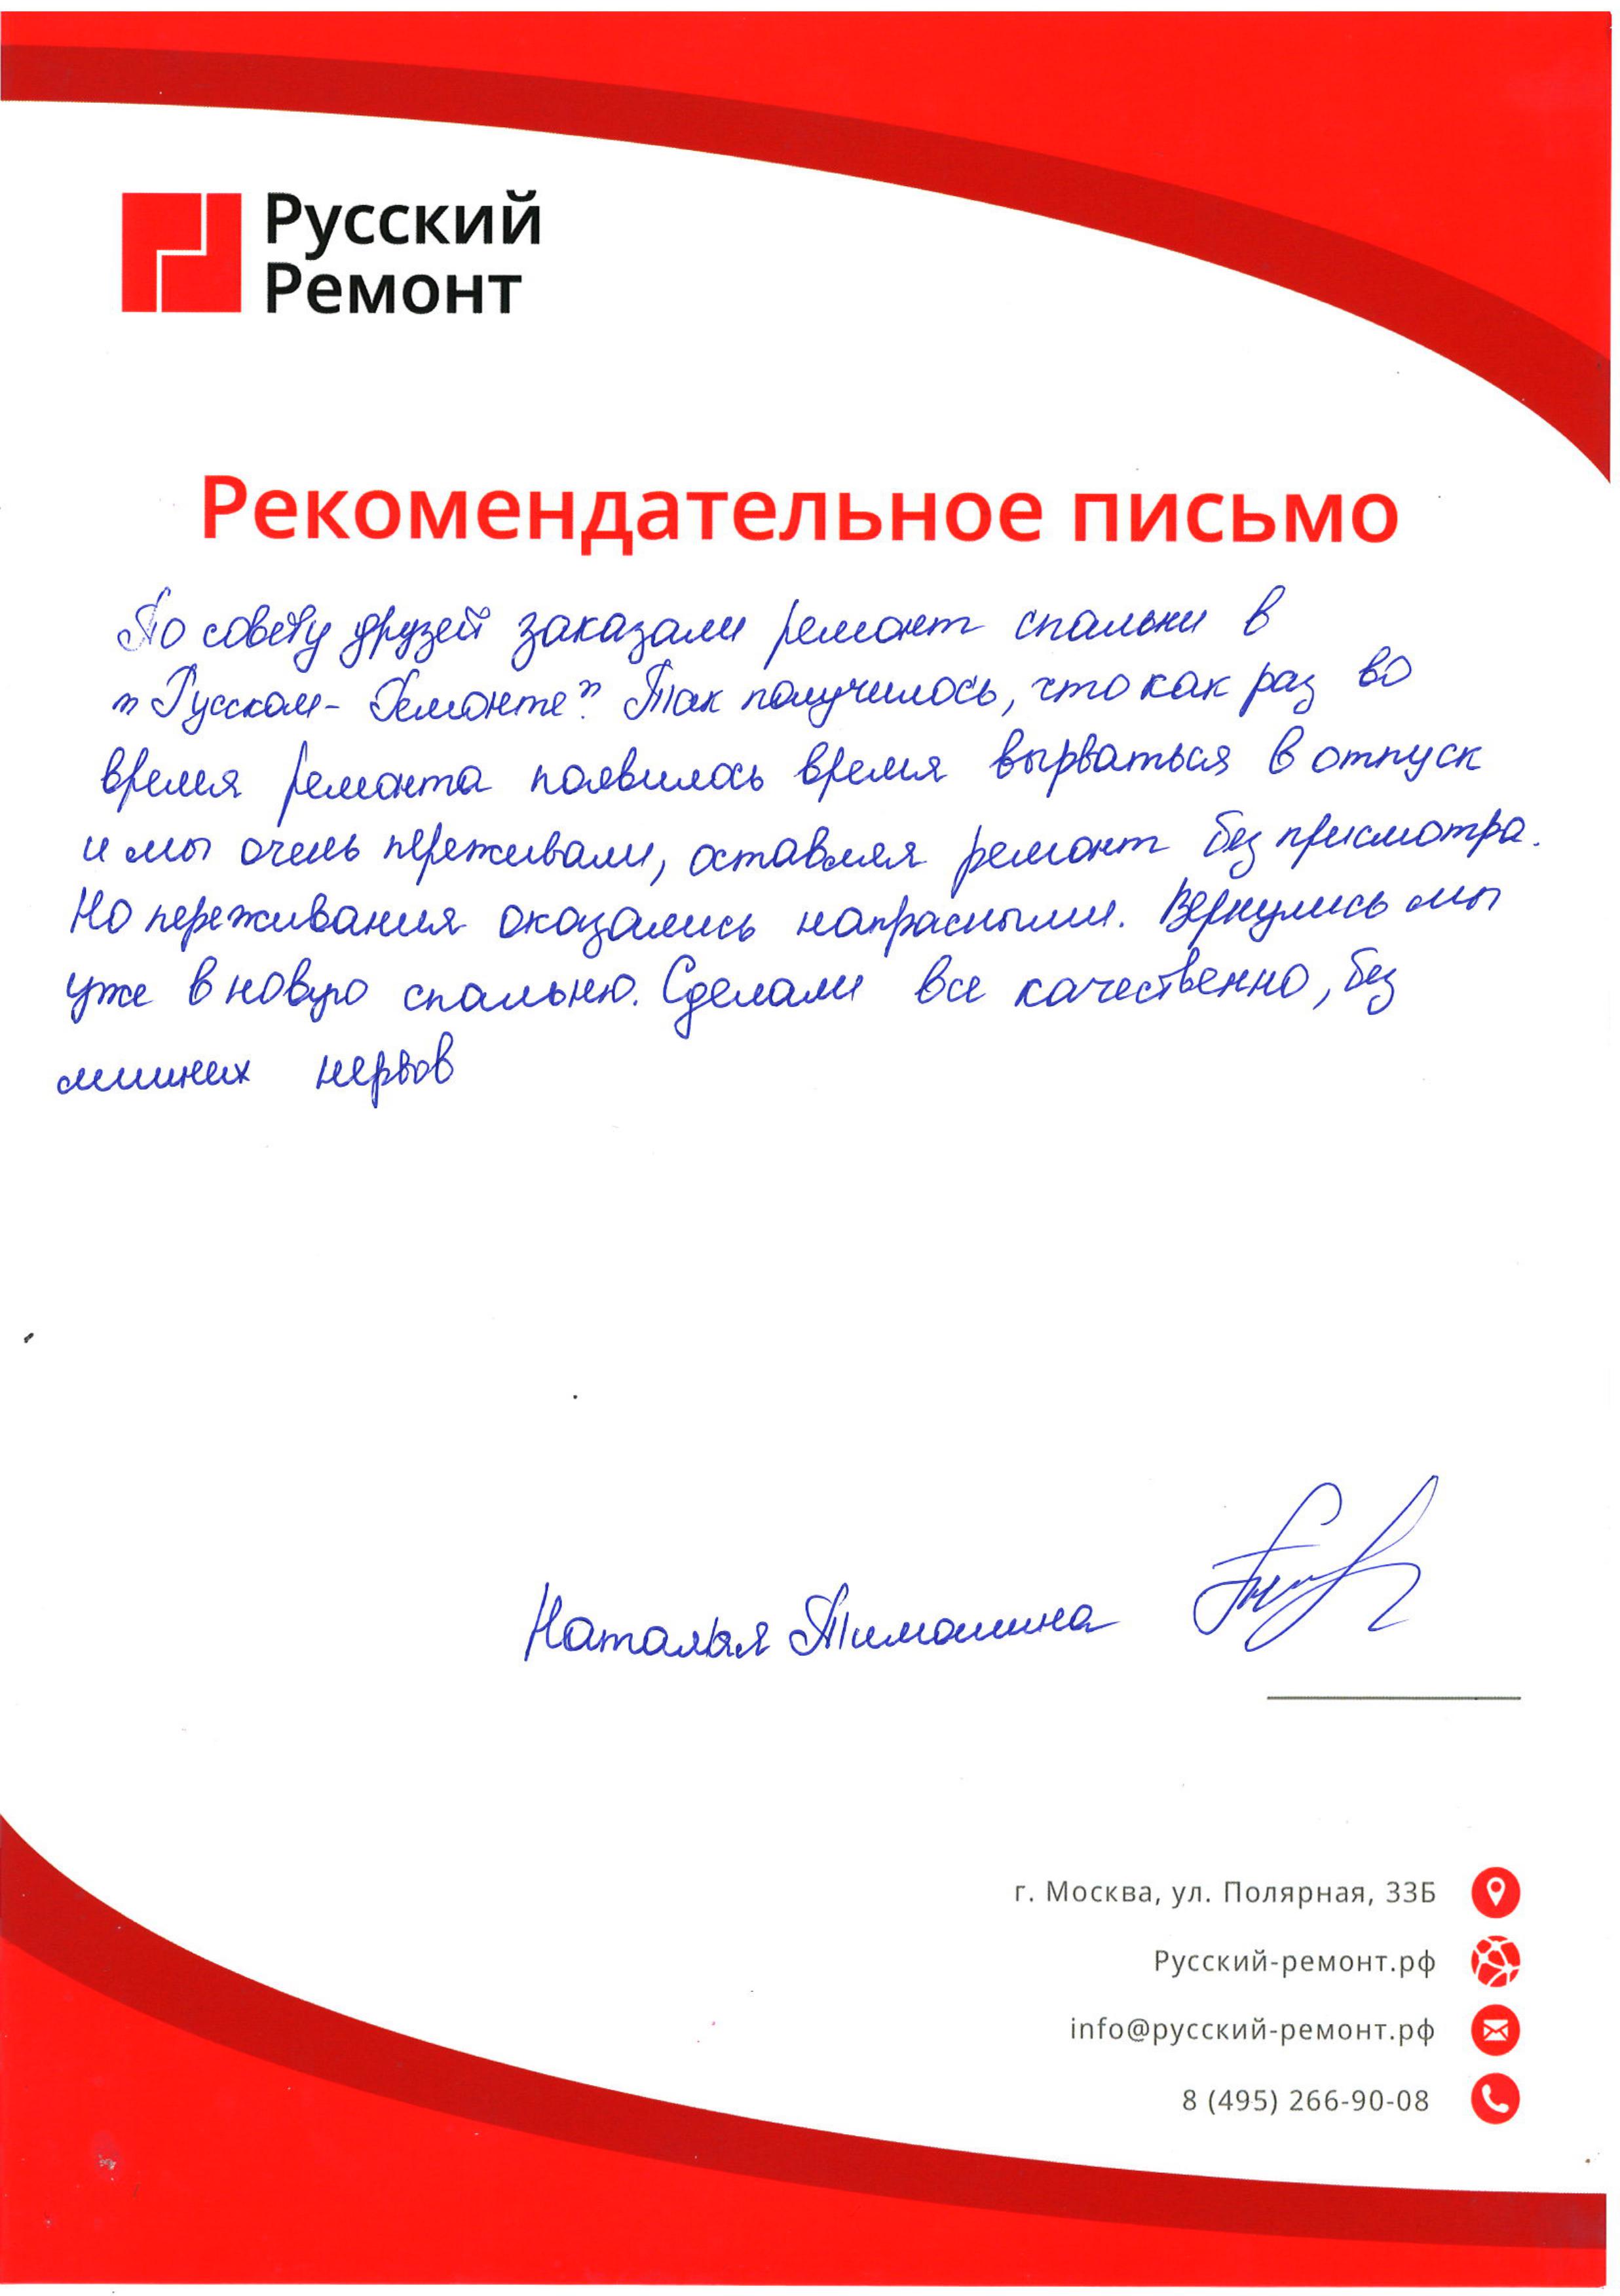 Русский
Ремонт
Рекомендательное письмо
По совету друзей заказали ремонт спальни в
"Русском-Ремонте". Так получилось, что как раз во
время ремонта появилось время вырваться в отпуск
и мы очень переживали, оставляя ремонт без присмотра.
Но переживания оказались напрасными. Вернулись мы
уже в новую спальню. Сделали все качественно, без
лишних нервов
Наталья Тимошина
г. Москва, ул. Полярная, 33Б
Русский-ремонт.рф
info@русский-ремонт.рф
8 (495) 266-90-08